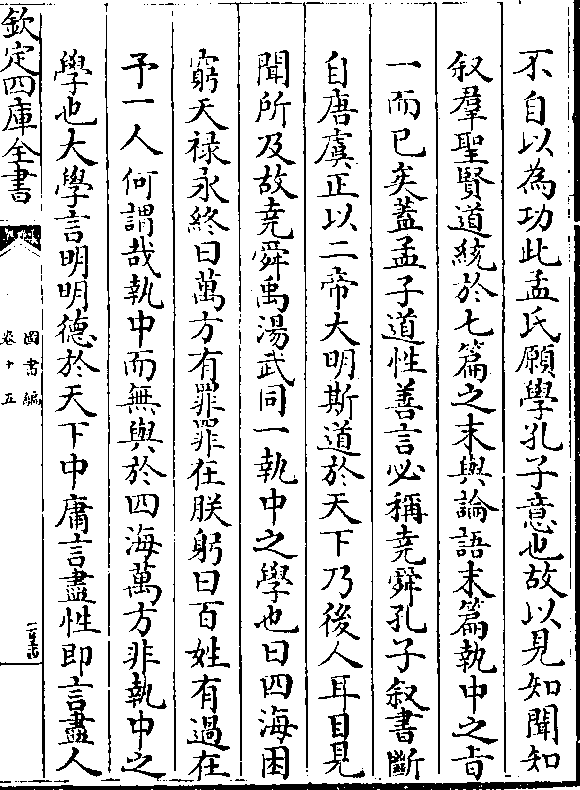 不自以為功此孟氏願學孔子意也故以見知聞知
叙羣聖賢道統於七篇之末與論語末篇執中之㫖
一而已矣蓋孟子道性善言必稱堯舜孔子叙書斷
自唐虞正以二帝大明斯道於天下乃後人耳目見
聞所及故堯舜禹湯武同一執中之學也曰四海困
窮天祿永終曰萬方有罪罪在朕躬曰百姓有過在
予一人何謂哉執中而無與於四海萬方非執中之
學也大學言明明德於天下中庸言盡性即言盡人
欽定四庫全書
圖書編
卷十五